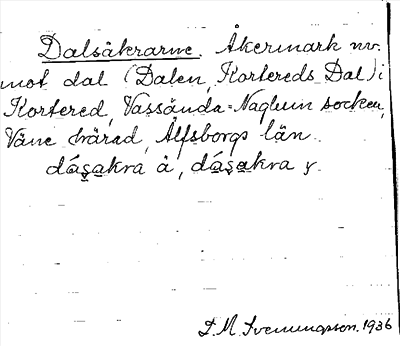 Dalsåkrarne. Åkermark nv.
mot dal (Dalen, Kortereds Dal) i
Kortered, Vassända-Naglum socken,
Väne härad, Älfsborgs län.
dáṣakra å, dáṣakra y.
T. M. Svenungsson. 1936